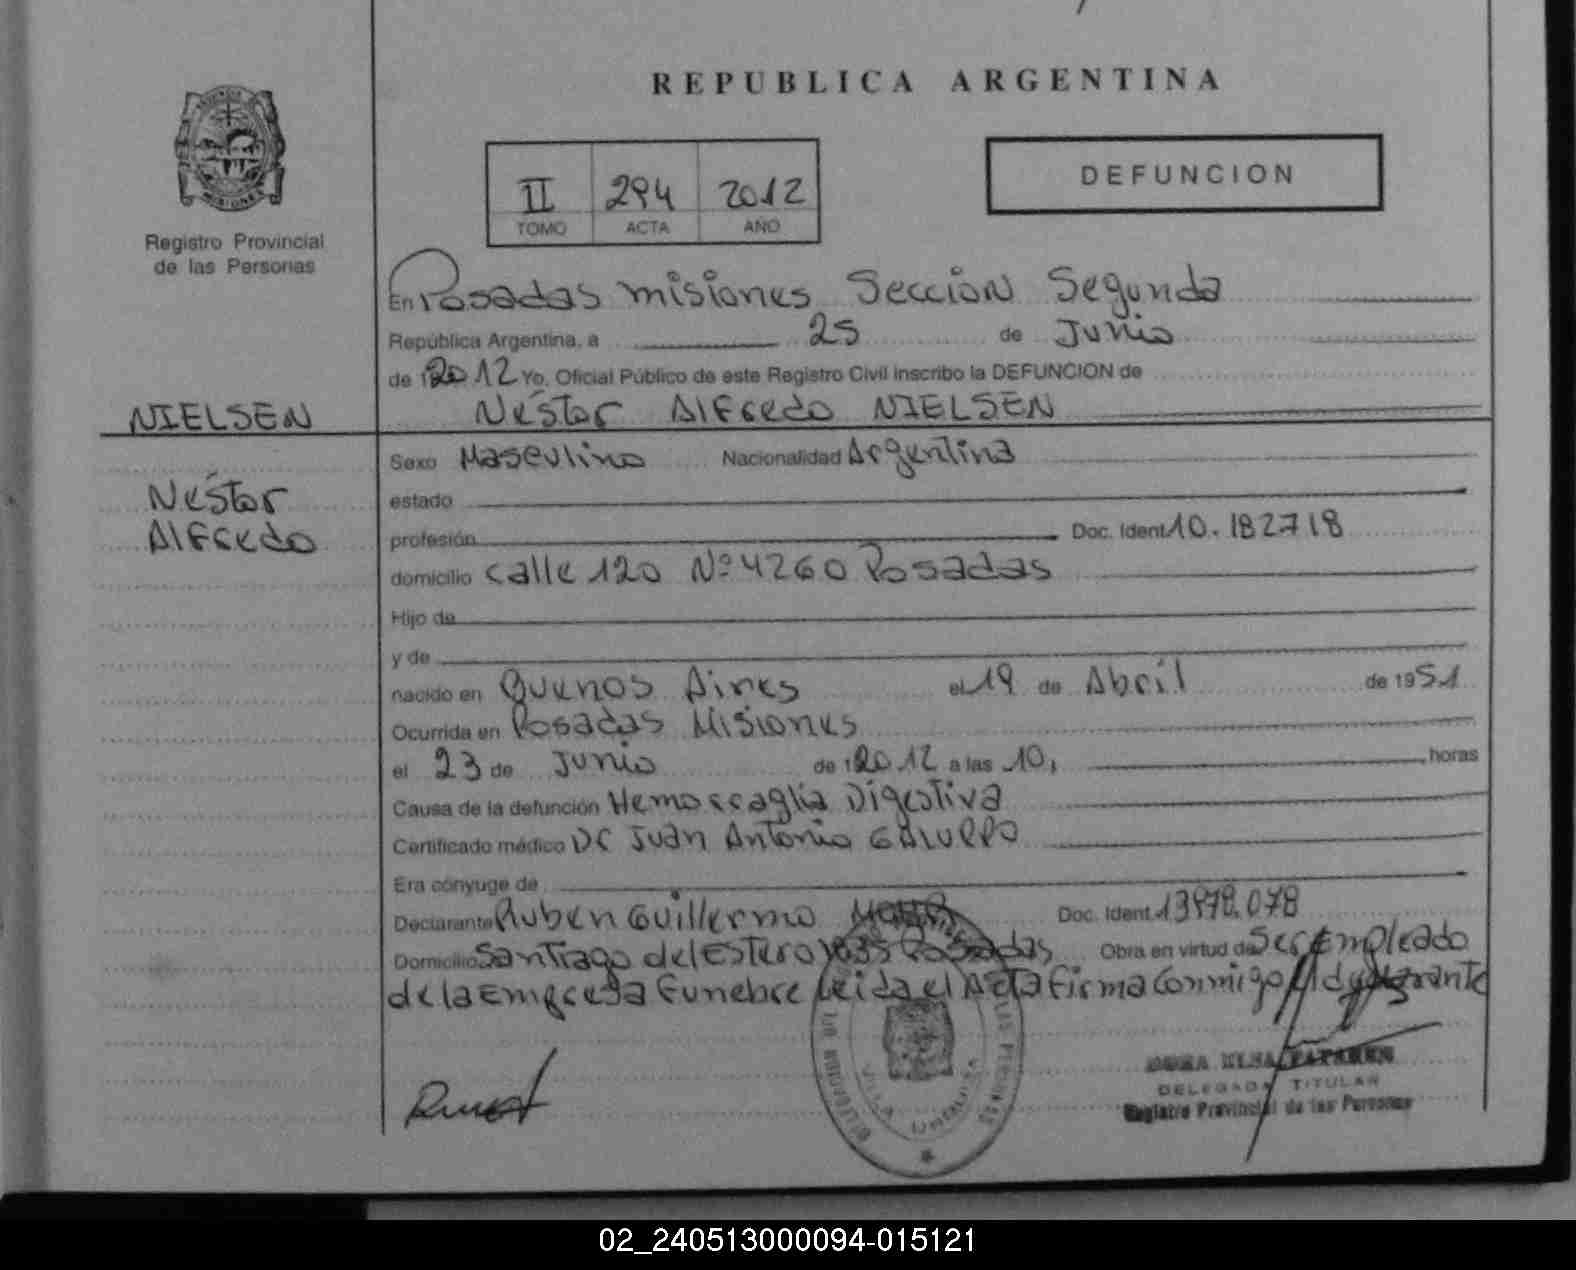 REPUBLICA ARGENTINA
DEFUNCION
II 294 2012
TOMO ACTA AÑO
Registro Provincial
de las Personas
En Posadas misiones Seccion Segunda
República Argentina, a 25 de Junio
de 12012 Yo, Oficial Público de este Registro Civil inscribo la DEFUNCION de
NIELSEN
Néstor Alfredo NIELSEN
Néstor
Alfredo
Sexo Masculino Nacionalidad Argentina
estado
profesión Doc. Ident. 10.182718
domicilio calle 120 Nº 4260 Posadas
Hijo de
y de
nacido en Buenos Aires el 19 de Abril de 1951
Ocurrida en Posadas Misiones
el 23 de Junio de 12012 a las 10, horas
Causa de la defunción Hemorraglia Digestiva
Certificado médico Dr Juan Antonio GALUPPO
Era cónyuge de
Declarante Ruben Guillermo Doc. Ident. 13978.078
Domicilio Santiago del Estero 1835 Posadas Obra en virtud de Ser Empleado
de la Empresa Funebre Leida el Acta firma Conmigo
DELEGADA TITULAR
Registro Provincial de las Personas
VILLA URQUIZA
02_240513000094-015121